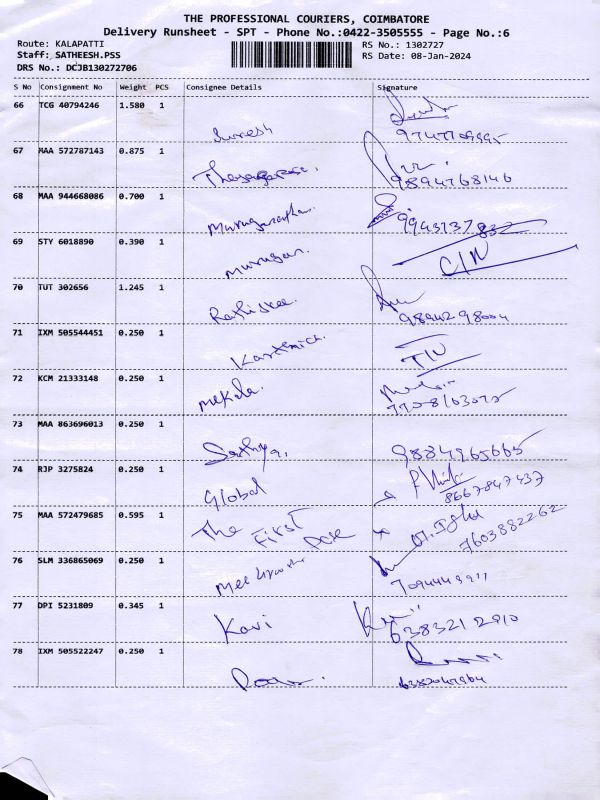 THE PROFESSIONAL COURIERS, COIMBATORE
Delivery Runsheet - SPT - Phone No.:0422-3505555 - Page No.:6
Route: KALAPATTI RS No.: 1302727
Staff: SATHEESH.PSS RS Date: 08-Jan-2024
DRS No.: DCJB130272706
S No Consignment No Weight PCS Consignee Details Signature
66 TCG 40794246 1.580 1
Suresh
67 MAA 572787143 0.875 1
9894768146
68 MAA 944668086 0.700 1
9943137832
69 STY 6018890 0.390 1
Murugan. C/N
70 TUT 302656 1.245 1
9894298004
71 IXM 505544451 0.250 1
72 KCM 21333148 0.250 1
Mekala.
73 MAA 863696013 0.250 1
Sathya, 9884965665
74 RJP 3275824 0.250 1
Global 8667847437
75 MAA 572479685 0.595 1
The First 7603882262
76 SLM 336865069 0.250 1
77 DPI 5231809 0.345 1
Kavi 6383212910
78 IXM 505522247 0.250 1